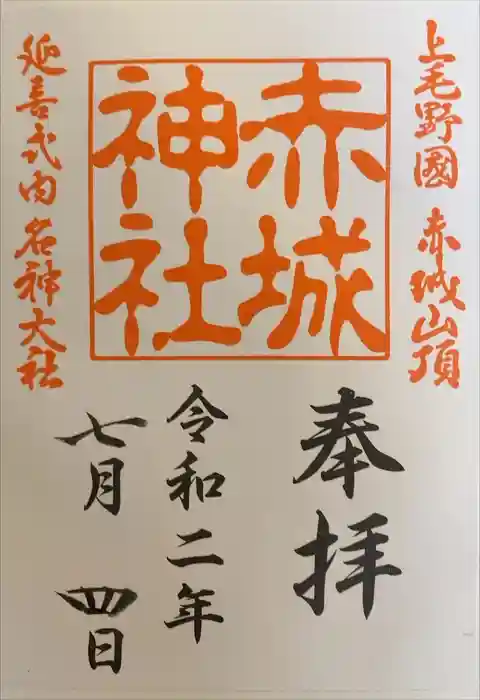 上毛野國 赤城山頂
赤城
神社
延喜式内名神大社
奉拝
令和二年
七月 四日